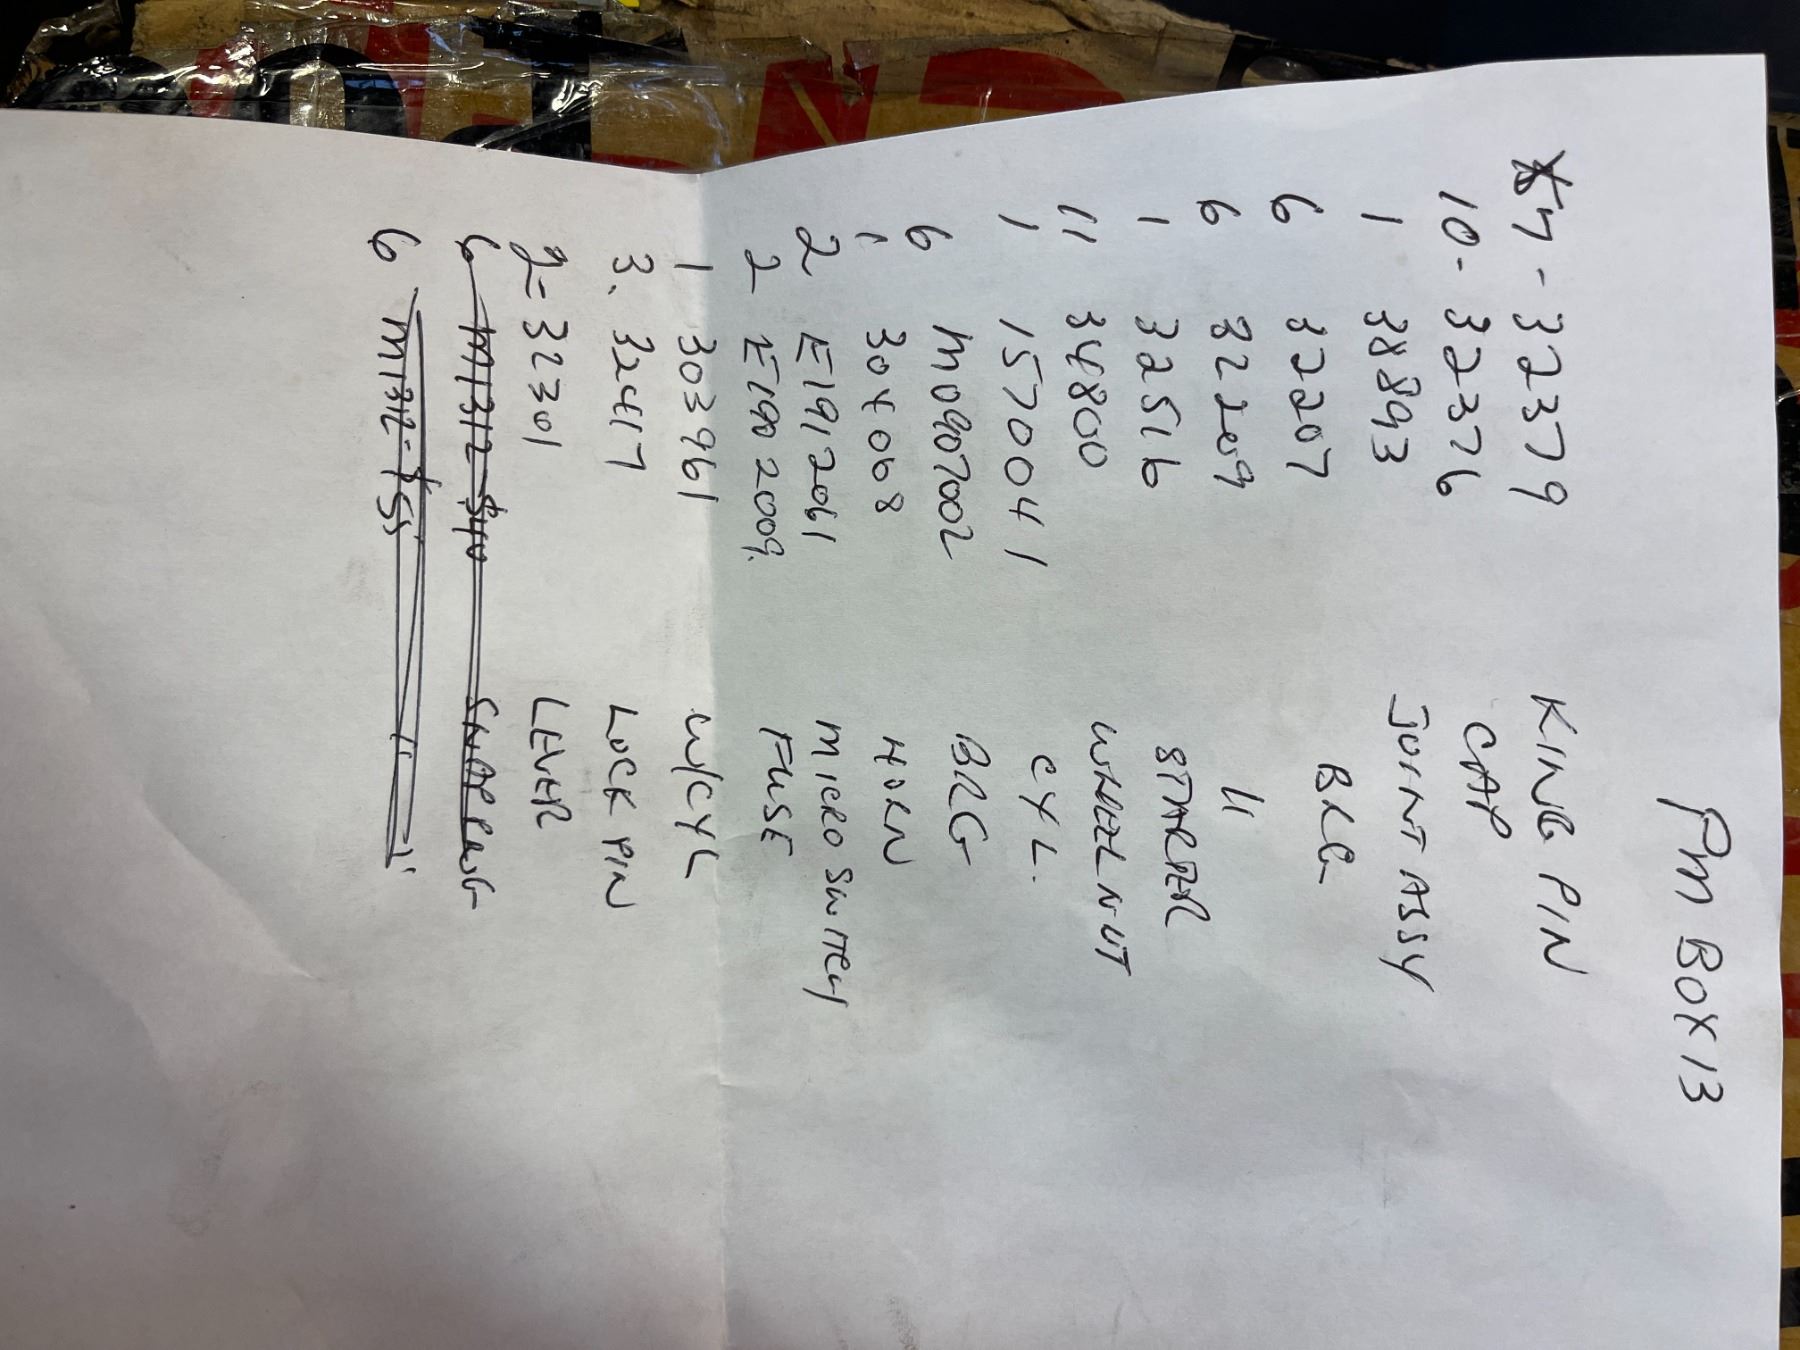 PM BOX 13
7 - 32379 KING PIN
10 - 32376 CAP
1 38893 JOINT ASSY
6 32207 BRG
6 32209 "
1 32516 STARTER
11 34800 WHEEL NUT
1 1570041 CYL.
6 M0907002 BRG
1 304008 HORN
2 E1912061 MICRO SWITCH
2 E1902009 FUSE
1 303961 W/CYL
3. 32417 LOCK PIN
2 = 32301 LEVER
6 M1312-$40 SNAP RING
6 M1312-$55 "